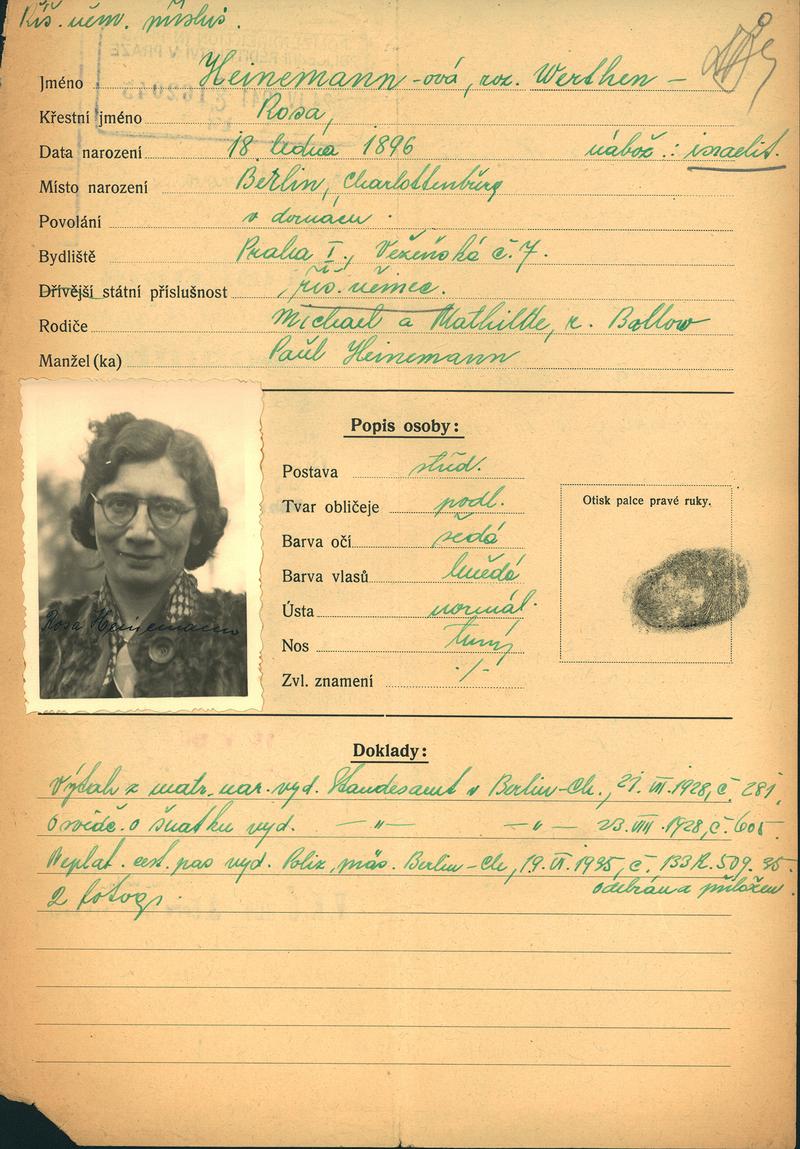 Říš. něm. přísluš.
Jméno Heinemann-ová, roz. Werthen –
Křestní jméno Rosa,
Data narození 18. ledna 1896 nábož.: israelit.
Místo narození Berlin, Charlottenburg
Povolání v domácn.
Bydliště Praha I., Vězeňská č. 7.
Dřívější státní příslušnost říš. němec.
Rodiče Michael a Mathilde, r. Bollow
Manžel (ka) Paul Heinemann
Popis osoby:
Postava střed.
Tvar obličeje podl.
Barva očí šedá
Barva vlasů hnědá
Ústa normál.
Nos
Zvl. znamení ./.
Otisk palce pravé ruky.
Rosa Heinemann
Doklady:
Výtah z matr. nar. vyd. Standesamt v Berlin-Ch., 21. VII. 1928, č. 281,
Osvědč. o sňatku vyd. — " — — " — 23. VIII. 1928, č. 605.
Neplat. cest. pas vyd. Poliz. präs. Berlin-Ch, 19. VI. 1935, č. 133 R. 509. 35.
odebrán a přiložen.
2 fotogr.